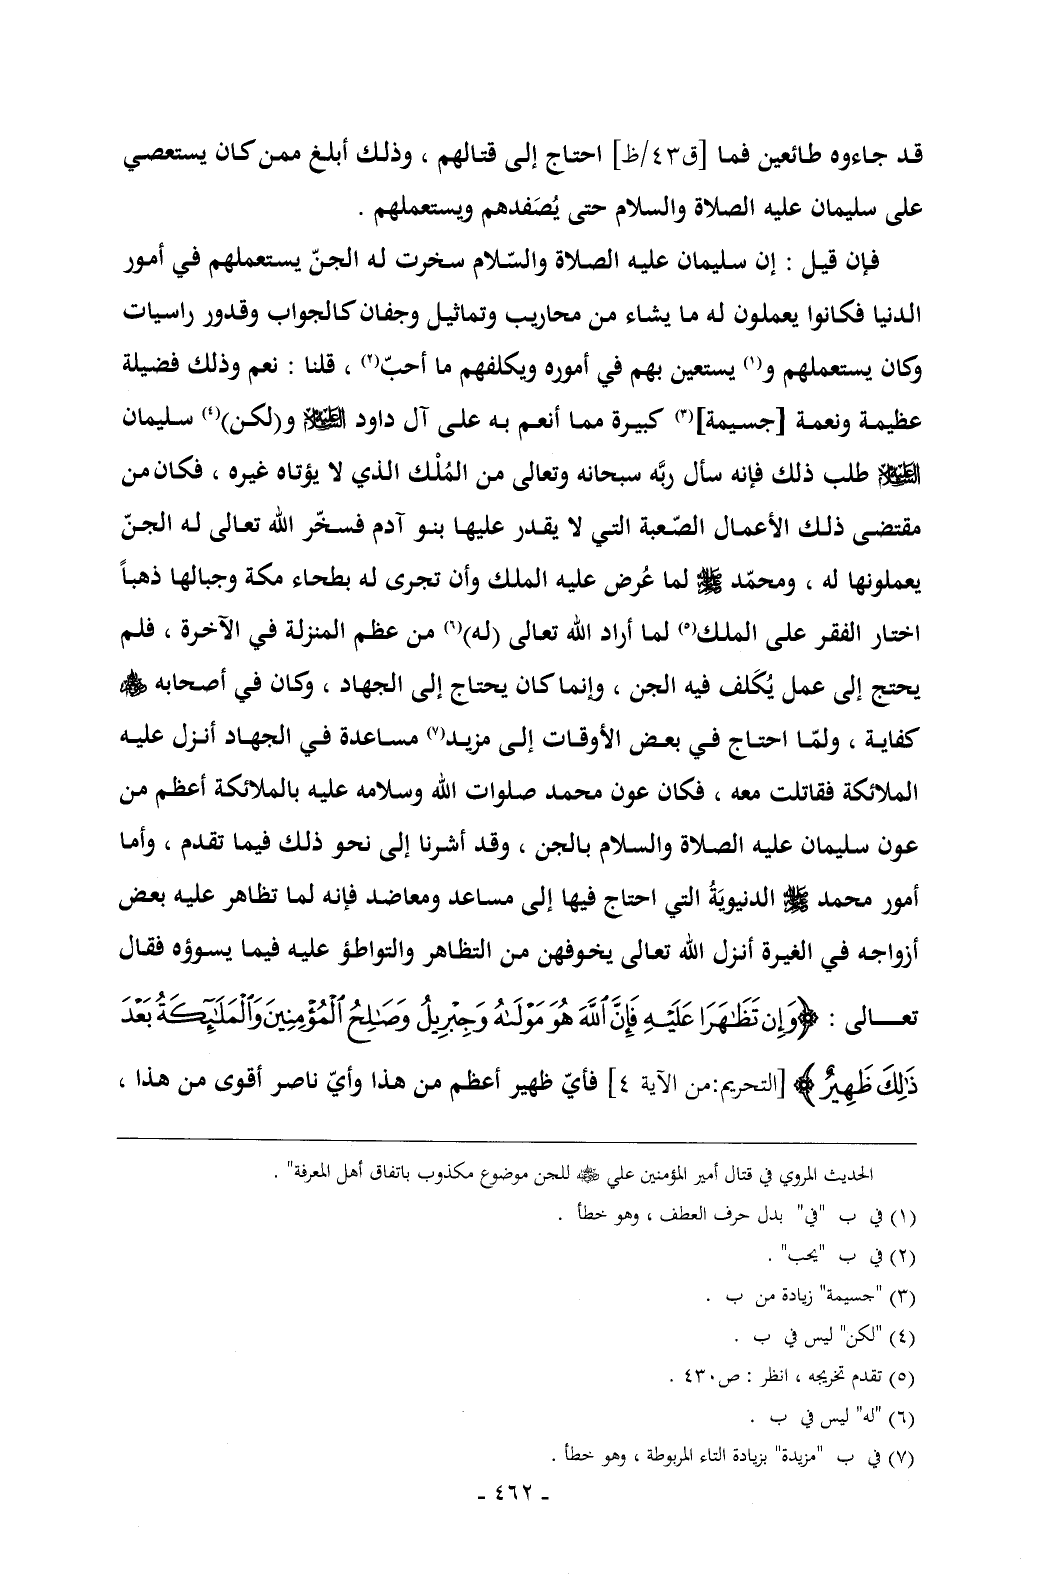 قد جاءوه طائعين فما [ق٤٣/ظ] احتاج إلى قتالهم ، وذلك أبلغ ممن كان يستعصي
على سليمان عليه الصلاة والسلام حتى يُصَفدهم ويستعملهم .
فإن قيل : إن سليمان عليه الصلاة والسّلام سخرت له الجنّ يستعملهم في أمور
الدنيا فكانوا يعملون له ما يشاء من محاريب وتماثيل وجفان كالجواب وقدور راسيات
وكان يستعملهم و(١) يستعين بهم في أموره ويكلفهم ما أحبّ(٢) ، قلنا : نعم وذلك فضيلة
عظيمة ونعمة [جسيمة](٣) كبيرة مما أنعم به على آل داود العَلَيْهِ السَّلَام و(لكن)(٤) سليمان
العَلَيْهِ السَّلَام طلب ذلك فإنه سأل ربَّه سبحانه وتعالى من المُلْك الذي لا يؤتاه غيره ، فكان من
مقتضى ذلك الأعمال الصّعبة التي لا يقدر عليها بنو آدم فسخّر الله تعالى له الجنّ
يعملونها له ، ومحمّد ﷺ لما عُرض عليه الملك وأن تجرى له بطحاء مكة وجبالها ذهباً
اختار الفقر على الملك(٥) لما أراد الله تعالى (له)(٦) من عظم المنزلة في الآخرة ، فلم
يحتج إلى عمل يُكَلف فيه الجن ، وإنما كان يحتاج إلى الجهاد ، وكان في أصحابه ﷺ
كفاية ، ولمّا احتاج في بعض الأوقات إلى مزيد(٧) مساعدة في الجهاد أنزل عليه
الملائكة فقاتلت معه ، فكان عون محمد صلوات الله وسلامه عليه بالملائكة أعظم من
عون سليمان عليه الصلاة والسلام بالجن ، وقد أشرنا إلى نحو ذلك فيما تقدم ، وأما
أمور محمد ﷺ الدنيويَةُ التي احتاج فيها إلى مساعد ومعاضد فإنه لما تظاهر عليه بعض
أزواجه في الغيرة أنزل الله تعالى يخوفهن من التظاهر والتواطؤ عليه فيما يسوؤه فقال
تعـــالى : ﴿وَإِن تَظَٰهَرَا عَلَيْهِ فَإِنَّ ٱللَّهَ هُوَ مَوْلَىٰهُ وَجِبْرِيلُ وَصَٰلِحُ ٱلْمُؤْمِنِينَ وَٱلْمَلَٰٓئِكَةُ بَعْدَ
ذَٰلِكَ ظَهِيرٌ﴾ [التحريم:من الآية ٤] فأيّ ظهير أعظم من هذا وأيّ ناصر أقوى من هذا ،
الحديث المروي في قتال أمير المؤمنين علي ﷺ للجن موضوع مكذوب باتفاق أهل المعرفة" .
(١) في ب "في" بدل حرف العطف ، وهو خطأ .
(٢) في ب "يحب" .
(٣) "جسيمة" زيادة من ب .
(٤) "لكن" ليس في ب .
(٥) تقدم تخريجه ، انظر : ص٤٣٠ .
(٦) "له" ليس في ب .
(٧) في ب "مزيدة" بزيادة التاء المربوطة ، وهو خطأ .
- ٤٦٢ -